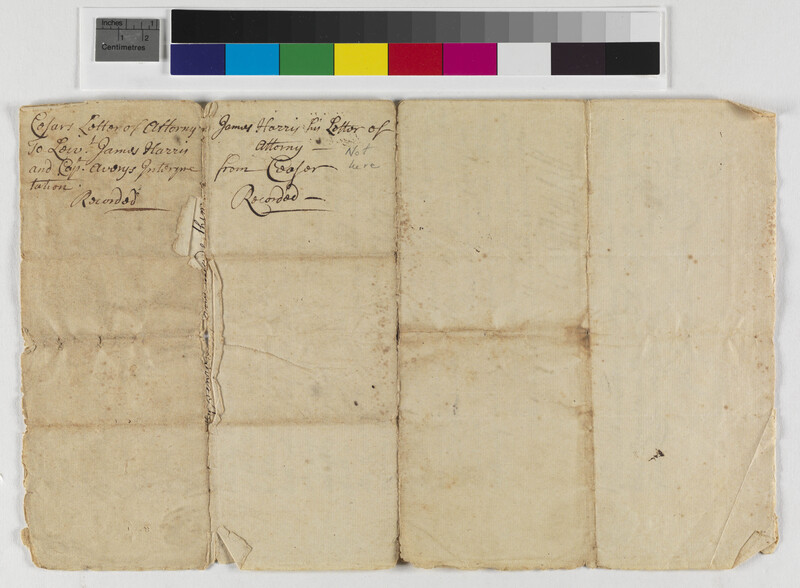 Inches 1
1 2
Centimetres
Cesars Letter of Attorny
To Lewt. James Harris
and Capt. Averys Interpre
tation.
Recorded
James Harris his Letter of
Attorny —
from Ceaser
Recorded —
Not
here